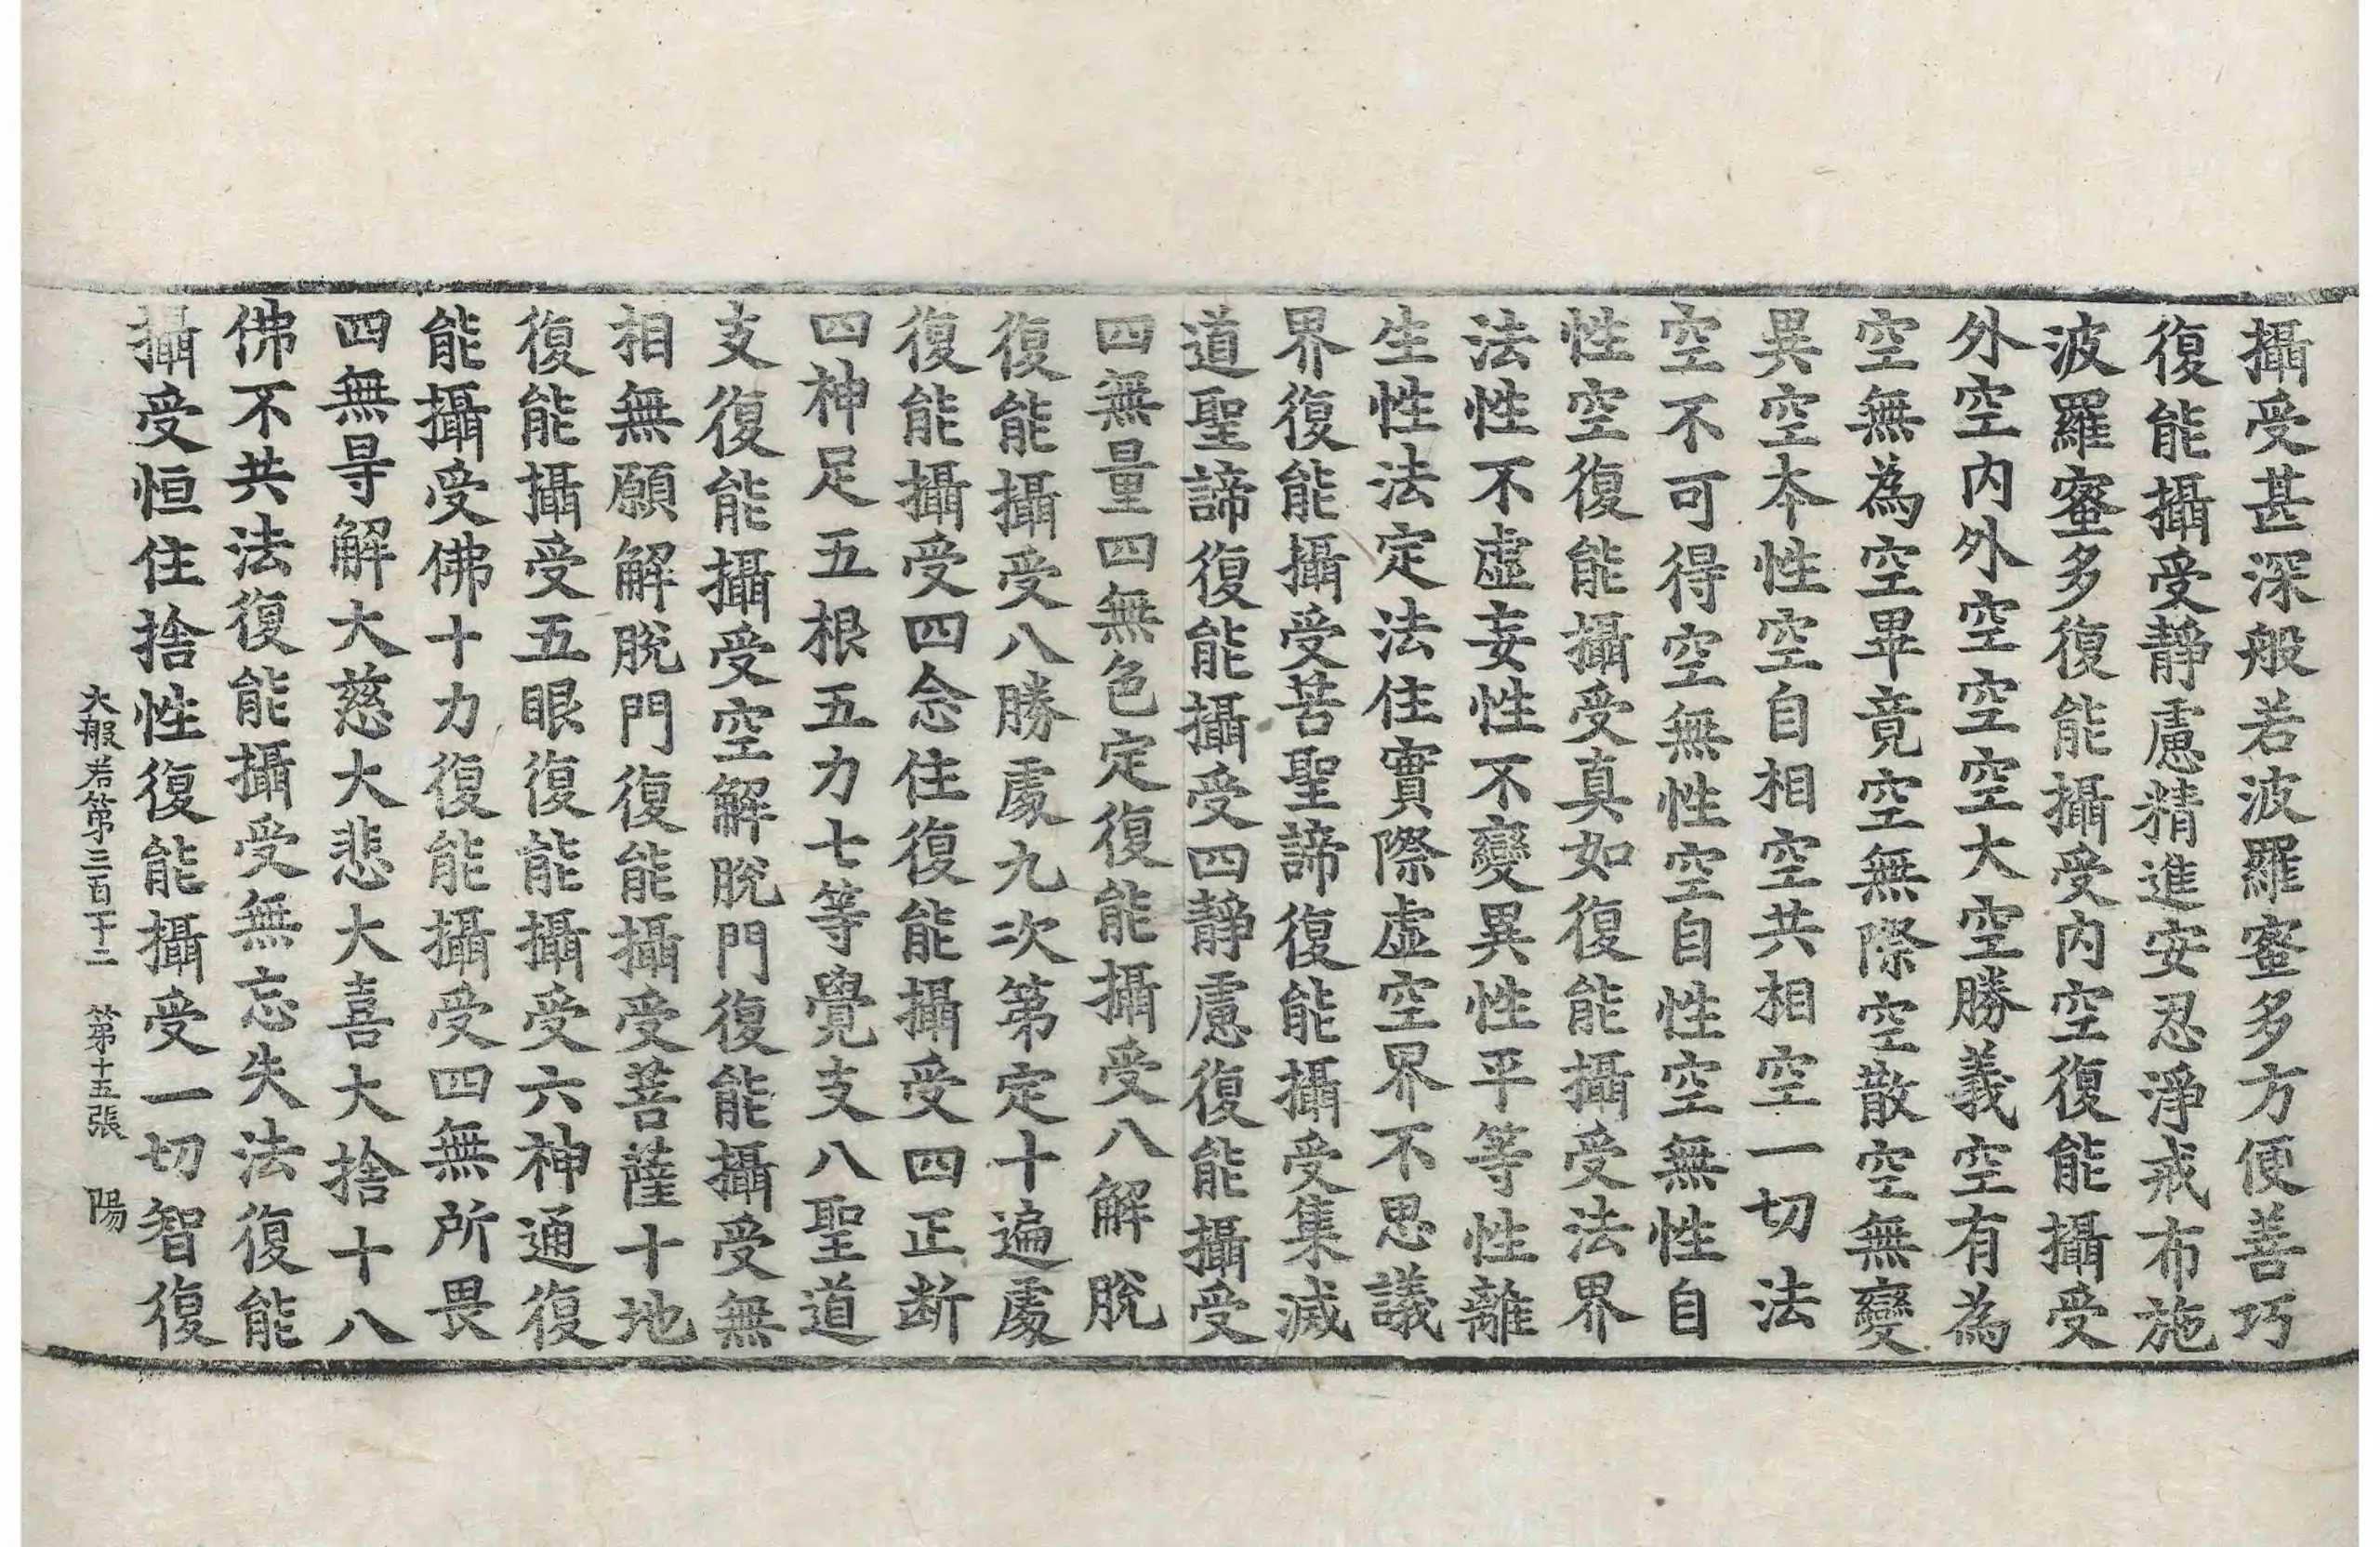 攝受甚深般若波羅蜜多方便善巧
復能攝受靜慮精進安忍淨戒布施
波羅蜜多復能攝受内空復能攝受
外空内外空空空大空勝義空有為
空無為空畢竟空無際空散空無變
異空夲性空自相空共相空一切法
空不可得空無性空自性空無性自
性空復能攝受真如復能攝受法界
法性不虛妄性不變異性平等性離
生性法定法住實際虛空界不思議
界復能攝受苦聖諦復能攝受集滅
道聖諦復能攝受四靜慮復能攝受
四無量四無色定復能攝受八解脫
復能攝受八勝處九次第定十遍處
復能攝受四念住復能攝受四正断
四神足五根五力七等覺支八聖道
支復能攝受空解脫門復能攝受無
相無願解脫門復能攝受菩薩十地
復能攝受五眼復能攝受六神通復
能攝受佛十力復能攝受四無所畏
四無㝵解大慈大悲大喜大捨十八
佛不共法復能攝受無忘失法復能
攝受恒住捨性復能攝受一切智復
大般若第三百十二 第十五張 陽